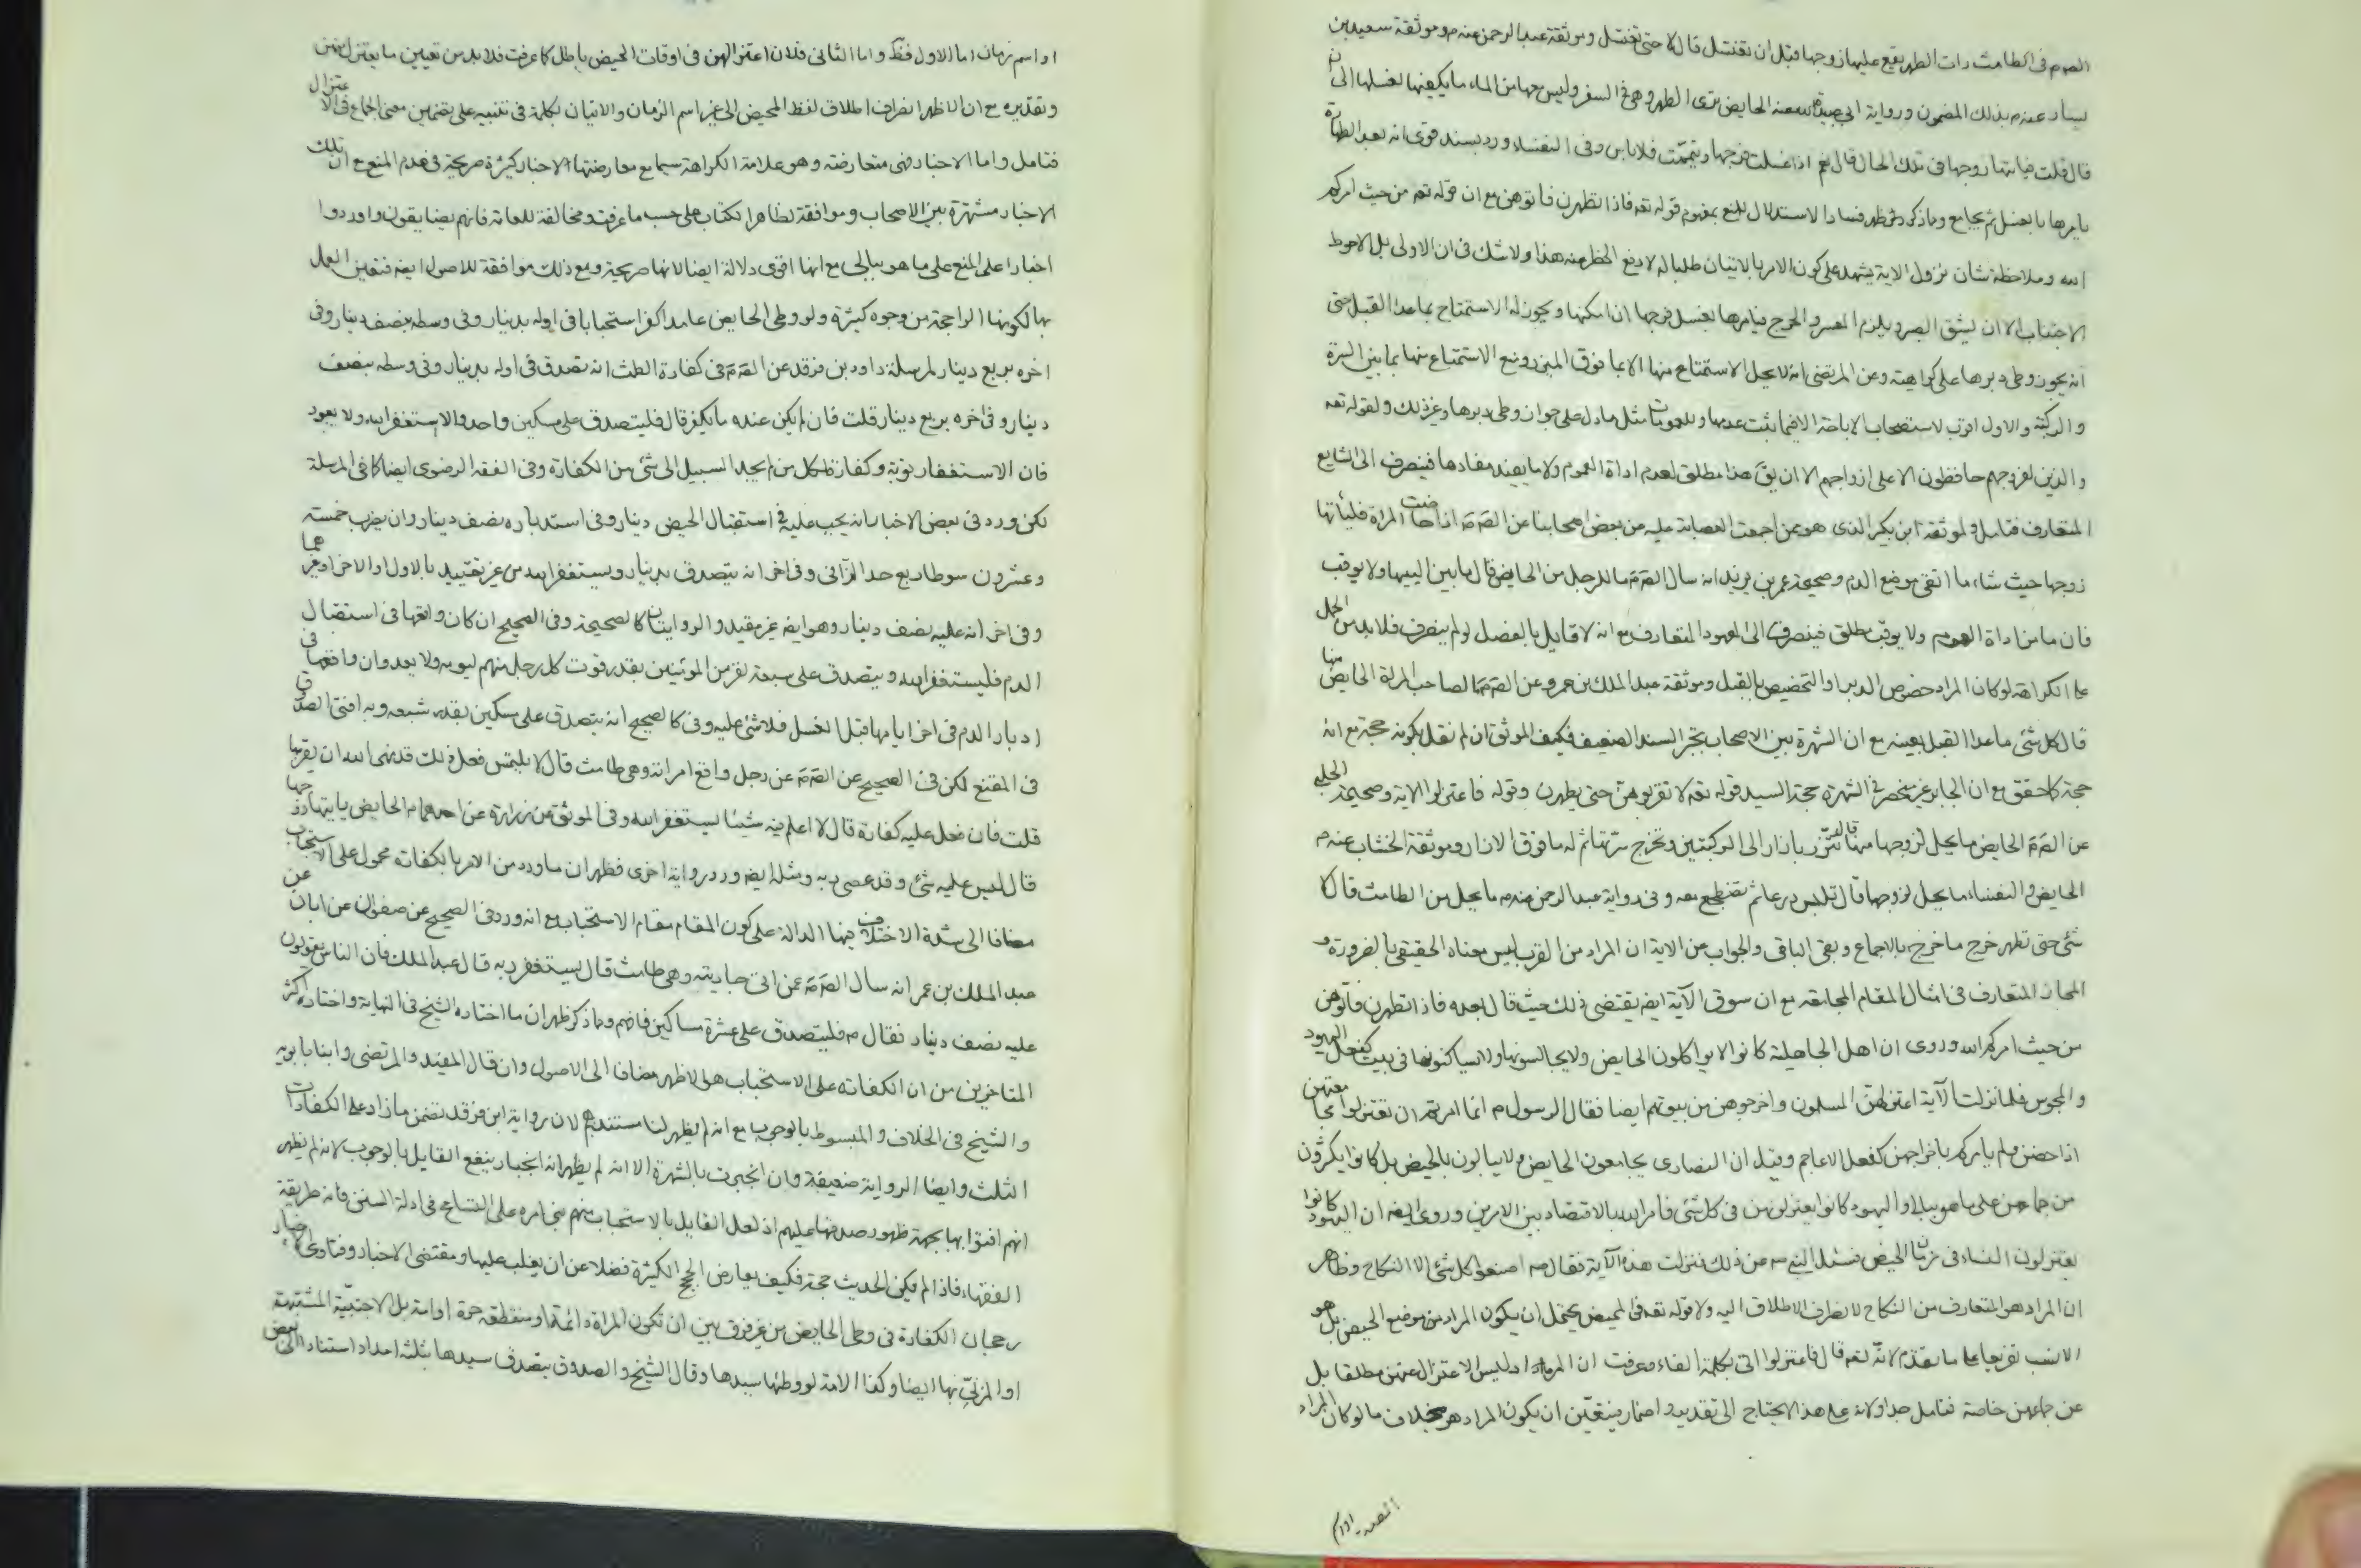 الصوم فى الطامث رات الطهر يقع عليها زوجها قبل ان تغتسل قال لا حتى تغتسل وموثقة عبد الرحمن عنه م وموثقة سعيد بن
يسار عنه م بذلك المضمون ورواية ابى عبيدة عنه الحايض ترى الطهر وهى فى السفر وليس معها من الماء ما يكفيها لغسلها الى ان
قال قلت فياتيها زوجها فى تلك الحال قال نعم اذا غسلت فرجها وتيممت فلا باس وفى النفساء ورد بسند قوى انه بعد الطهارة
يامرها بالغسل ثم يجامع ومما ذكر ظهر فساد الاستدلال للمنع بمفهوم قوله تعه فاذا تطهرن فاتوهن مع ان قوله تعه من حيث امركم
الله وملاحظة شان نزول الاية يشهد على كون الامر بالاتيان طلبا له لا دفع الحظر منه هذا ولا شك فى ان الاولى بل الاحوط
الاجتناب الا ان يشق الصبر ويلزم العسر والحرج فيامرها بغسل فرجها ان امكنها ويجوز له الاستمتاع بما عدا القبل حتى
انه يجوز وطى دبرها على كراهية وعن المرتضى انه لا يحل الاستمتاع منها الا بما فوق الميزر ومنع الاستمتاع منها بما بين السرة
والركبة والاول اقرب لاستصحاب الاباحة الا فيما ثبت عدمها وللعمومات مثل ما دل على جواز وطى دبرها وغير ذلك ولقوله تعه
والذين لفروجهم حافظون الا على ازواجهم الا ان يقَ هذا مطلق لعدم اداة العموم ولا ما يفيد مفادها فينصرف الى الشايع
المتعارف فتامل ولموثقة ابن بكير الذى هو ممن اجمعت العصابة عليه من بعض اصحابنا عن الصَم َ اذا حاضت المراة فلياتها
زوجها حيث شاء ما اتقى موضع الدم وصحيحة عمر بن يزيد انه سال الصَم َ ما للرجل من الحايض قال ما بين اليتيها ولا يوقب
فان ما من اداة العموم ولا يوقب مطلق فينصرف الى المعهود المتعارف مع انه لا قايل بالفصل لو لم ينصرف فلا بد من الحمل
على الكراهة لو كان المراد خصوص الدبر او التخصيص بالقبل وموثقة عبد الملك بن عمرو عن الصَم َ ما لصاحب المراة الحايض منها
قال كل شئ ما عدا القبل بعينه مع ان الشهرة بين الاصحاب تجبر السند الضعيف فكيف الموثق ان لم نقل بكونه حجة مع انه
حجة كما حقق مع ان الجابر غير منحصر فى الشهرة حجة السيد قوله تعه لا تقربوهن حتى يطهرن وقوله فاعتزلوا الاية وصحيحة الحلبى
عن الصَم َ الحايض ما يحل لزوجها منها قال تتزر بازار الى الركبتين وتخرج سرتها ثم له ما فوق الازار وموثقة الخشاب عنه م
الحايض والنفساء ما يحل لزوجها قال تلبس درعا ثم تضطجع معه وفى رواية عبد الرحمن عنه م ما يحل من الطامث قال لا
شئ حتى تطهر خرج ما خرج بالاجماع وبقى الباقى والجواب عن الاية ان المراد من القرب ليس معناه الحقيقى بالضرورة و
المجاز المتعارف فى امثال المقام المجامعة مع ان سوق الآية ايضه يقتضى ذلك حيث قال بعده فاذا تطهرن فاتوهن
من حيث امركم الله وروى ان اهل الجاهلية كانوا لا يواكلون الحايض ولا يجالسونها ولا يساكنونها فى بيت كفعل اليهود
والمجوس فلما نزلت الآية اعتزلهن المسلمون واخرجوهن من بيوتهم ايضا فقال الرسول ص انما امرتم ان تعتزلوا مجامعتهن
اذا حضن ولم يامركم باخراجهن كفعل الاعاجم وقيل ان النصارى يجامعون الحايض ولا يبالون بالحيض بل كانوا يكثرون
من جماعهن على ما هو ببالى واليهود كانوا يعتزلونهن فى كل شئ فامر الله بالاقتصاد بين الامرين وروى ايضه ان اليهود كانوا
يعتزلون النساء فى زمان الحيض فسئل النبى ص عن ذلك فنزلت هذه الآية فقال ص اصنعوا كل شئ الا النكاح وظاهر
ان المراد هو المتعارف من النكاح لانصراف الاطلاق اليه ولا قوله تعه فى المحيض يحتمل ان يكون المراد من موضع الحيض بل هو
الانسب تفريعا على ما تقدم لانه تعه قال فاعتزلوا اتى بكلمة الفاء وعرفت ان المراد ليس الاعتزال عنهن مطلقا بل
عن جماعهن خاصة فتامل جدا ولانه على هذا لا يحتاج الى تقدير واضمار فيتعين ان يكون المراد هو بخلاف ما لو كان المراد
او اسم زمان اما الاول فظَ واما الثانى فلان اعتزالهن فى اوقات الحيض باطل كما عرفت فلا بد من تعيين ما يعتزل منهن
وتقديره مع ان الظاهر انصراف اطلاق لفظ المحيض الى غير اسم الزمان والاتيان بكلمة فى تنبيه على تضمين معنى الجماع فى الاعتزال
فتامل واما الاخبار فهى متعارضة وهو علامة الكراهة سيما مع معارضتها الاخبار كثيرة صريحة فى عدم المنع مع ان تلك
الاخبار مشتهرة بين الاصحاب وموافقة لظاهر الكتاب على حسب ما عرفت ومخالفة للعامة فانهم يضايقون واوردوا
اخبارا على المنع على ما هو ببالى مع انها اقوى دلالة ايضا لانها صريحة ومع ذلك موافقة للاصول ايضه فتعين العمل
بها لكونها الراجحة من وجوه كثيرة ولو وطى الحايض عامدا كفر استحبابا فى اوله بدينار وفى وسطه بنصف دينار وفى
اخره بربع دينار لمرسلة داود بن فرقد عن الصَم َ فى كفارة الطمث انه تصدق فى اوله بدينار وفى وسطه بنصف
دينار وفى اخره بربع دينار قلت فان لم يكن عنده ما يكفر قال فليتصدق على مسكين واحد والا استغفر الله ولا يعود
فان الاستغفار توبة وكفارة لكل من لم يجد السبيل الى شئ من الكفارة وفى الفقه الرضوى ايضا كما فى المرسلة
لكن ورد فى بعض الاخبار انه يجب عليه فى استقبال الحيض دينار وفى استدباره نصف دينار وان يضرب خمسة
وعشرون سوطا ربع حد الزانى وفى اخر انه يتصدق بدينار ويستغفر الله من غير تقييد بالاول او الاخر او غيرهما
وفى اخر ان عليه نصف دينار وهو ايضه غير مقيد والروايتان كالصحيحة وفى الصحيح ان كان واقعها فى استقبال
الدم فليستغفر الله ويتصدق على سبعة نفر من المؤمنين بقدر قوت كل رجل منهم ليومه ولا يعد وان واقعها فى
ادبار الدم فى اخر ايامها قبل الغسل فلا شئ عليه وفى كالصحيح انه يتصدق على مسكين بقدر شبعه وبه افتى الصدوق
فى المقنع لكن فى الصحيح عن الصَم َ عن رجل واقع امراته وهى طامث قال لا يلتمس فعل ذلك قد نهى الله ان يقربها
قلت فان فعل عليه كفارة قال لا اعلم فيه شيئا يستغفر الله وفى الموثق عن زرارة عن احدهما م الحايض ياتيها زوجها
قال ليس عليه شئ وقد عصى ربه ومثله ايضه ورد رواية اخرى فظهر ان ما ورد من الامر بالكفارة محمول على الاستحباب
مضافا الى شدة الاختلاف فيها الدالة على كون المقام مقام الاستحباب مع انه ورد فى الصحيح عن صفوان عن ابان عن
عبد الملك بن عمر انه سال الصَم َ عمن اتى جاريته وهى طامث قال يستغفر ربه قال عبد الملك فان الناس يقولون
عليه نصف دينار فقال م فليتصدق على عشرة مساكين فافهم ومما ذكر ظهر ان ما اختاره الشيخ فى النهاية واختاره اكثر
المتاخرين من ان الكفارة على الاستحباب هو الاظهر مضافا الى الاصول وان قال المفيد والمرتضى وابنا بابويه
والشيخ فى الخلاف والمبسوط بالوجوب مع انه لم يظهر لنا مستندهم لان رواية ابن فرقد تضمن ما زاد على الكفارات
الثلث وايضا الرواية ضعيفة وان انجبرت بالشهرة الا انه لم يظهر انه انجبار ينفع القايل بالوجوب لانه لم يظهر
انهم افتوا بها بجهة ظهور صدقها عليهم اذ لعل القايل بالاستحباب منهم بنى امره على التسامح فى ادلة السنن فانه طريقة
الفقهاء فاذا لم يكن الحديث حجة فكيف يعارض الحجج الكثيرة فضلا عن ان يغلب عليها ومقتضى الاخبار وفتاوى الاخيار
رجحان الكفارة فى وطى الحايض من غير فرق بين ان تكون المراة دائمة او منقطعة حرة او امة بل الاجنبية المشتبهة
او المزنى بها ايضا وكذا الامة لو وطئها سيدها وقال الشيخ والصدوق يتصدق سيدها بثلثة امداد استنادا الى بعض